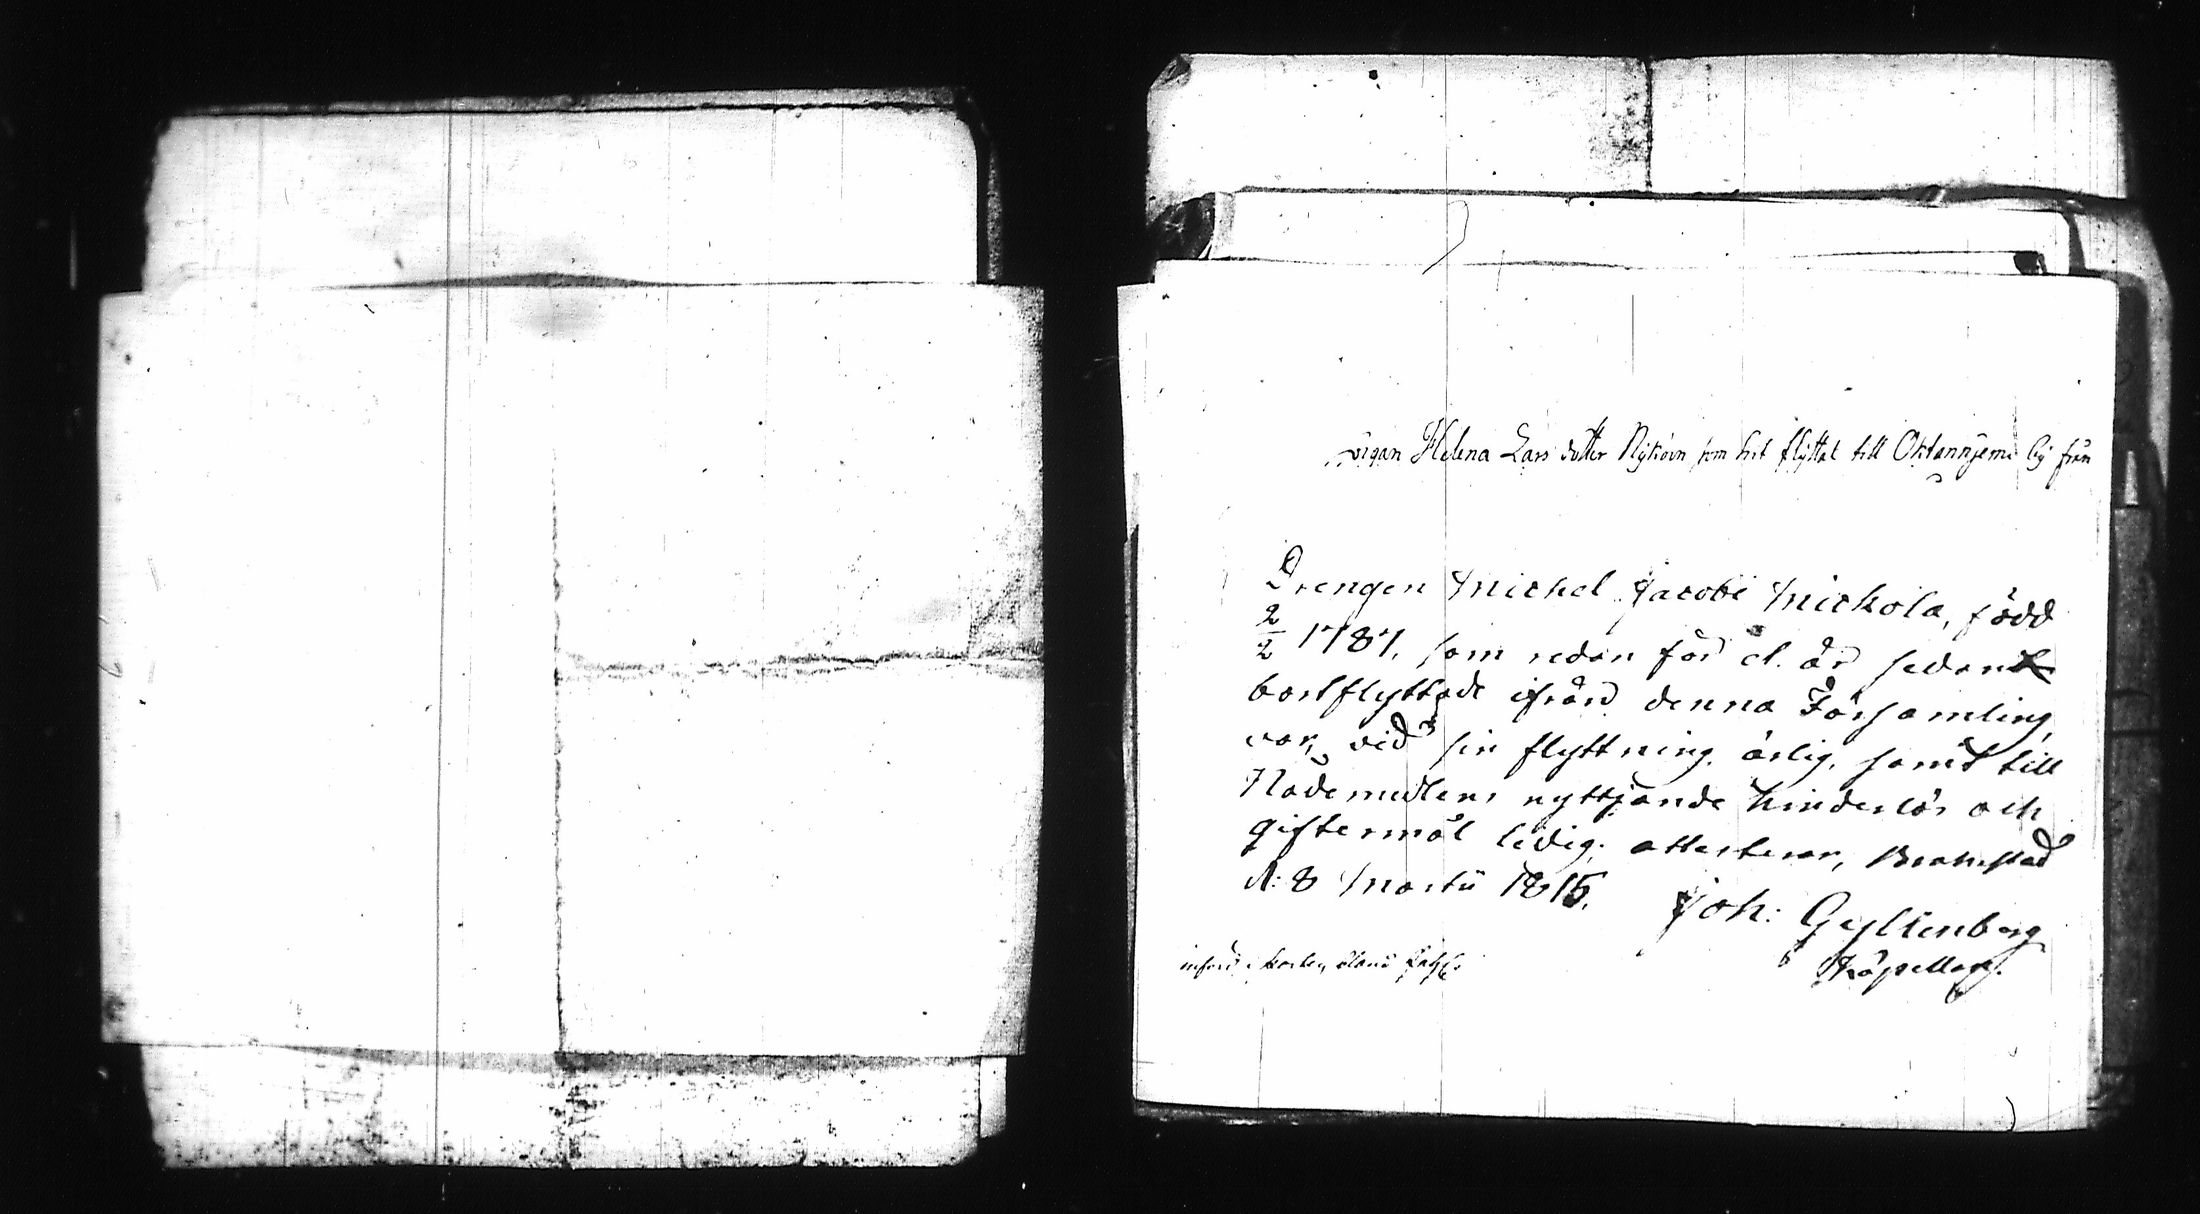 Pigan Helena Lars dotter Nykövn som hit flyttat till Oktannjemi by från
Drengen Michel Jacobi Mickola, född
2/2 1787, som redan för el. år sedan
bortflyttade ifrån denna Församling,
var, vid sin flyttning, ärlig, samt till
Nådemedlens nyttjande hinderlös och
giftermål ledig; attesterar, Brahestad
d: 8 Martii 1815. Joh: Gyllenberg
Kapellan.